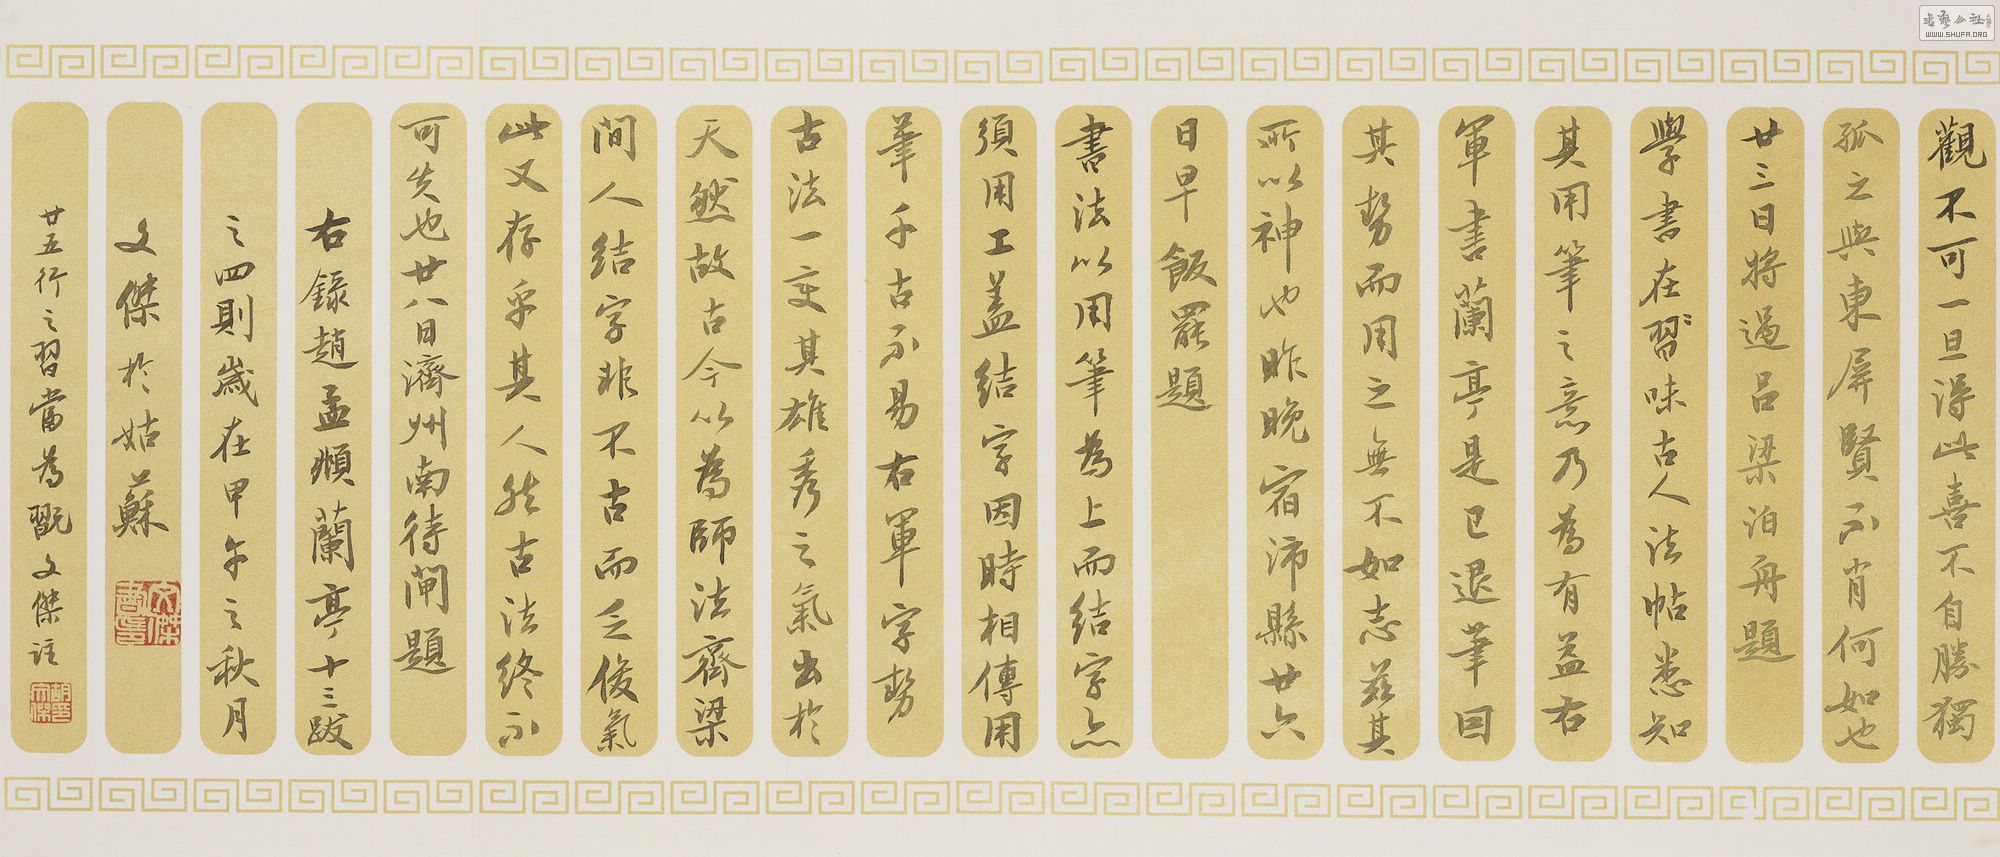 觀不可一旦得此喜不自勝獨
孤之與東屏賢不肖何如也
廿三日將過呂梁泊舟題
學書在習味古人法帖悉知
其用筆之意乃為有益右
軍書蘭亭是已退筆因
其勢而用之無不如志茲其
所以神也昨晚宿沛縣廿六
日早飯罷題
書法以用筆為上而結字亦
須用工蓋結字因時相傳用
筆千古不易右軍字勢
古法一變其雄秀之氣出於
天然故古今以為師法齊梁
間人結字非不古而乏俊氣
此又存乎其人然古法終不
可失也廿八日濟州南待閘題
右錄趙孟頫蘭亭十三跋
之四則歲在甲午之秋月
文傑於姑蘇
廿五行之習當為翫文傑注
書藝公社
WWW.SHUFA.ORG